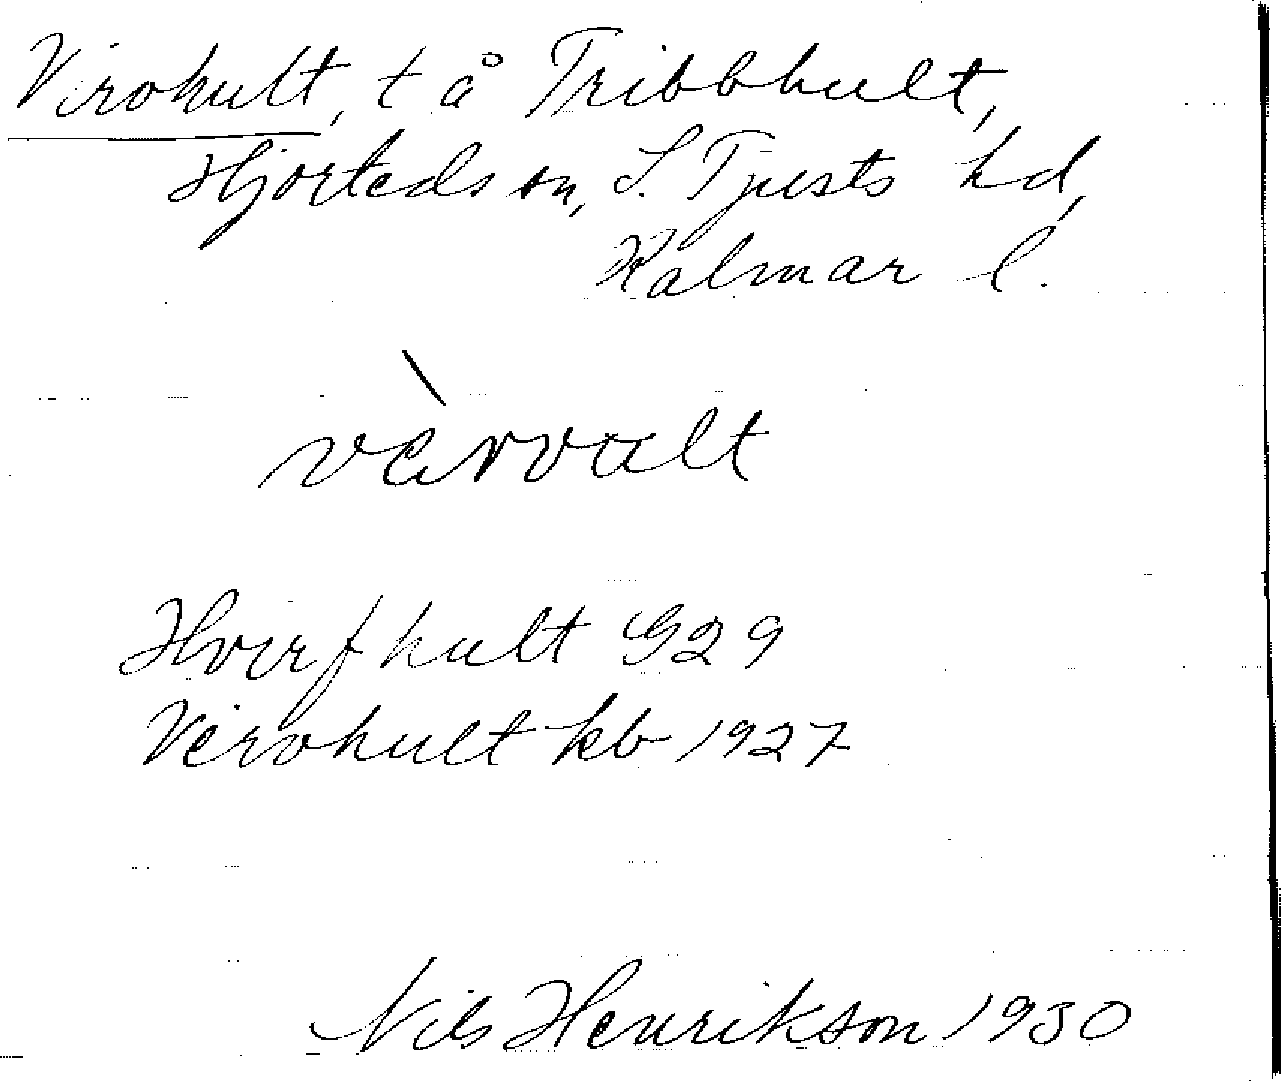 Virohult, t å Tribbhult,
Hjorteds sn, S. Tjusts hd,
Kalmar l.
vàrvult
Hvirfhult G29
Virohult kb 1927
Nils Henrikson 1930